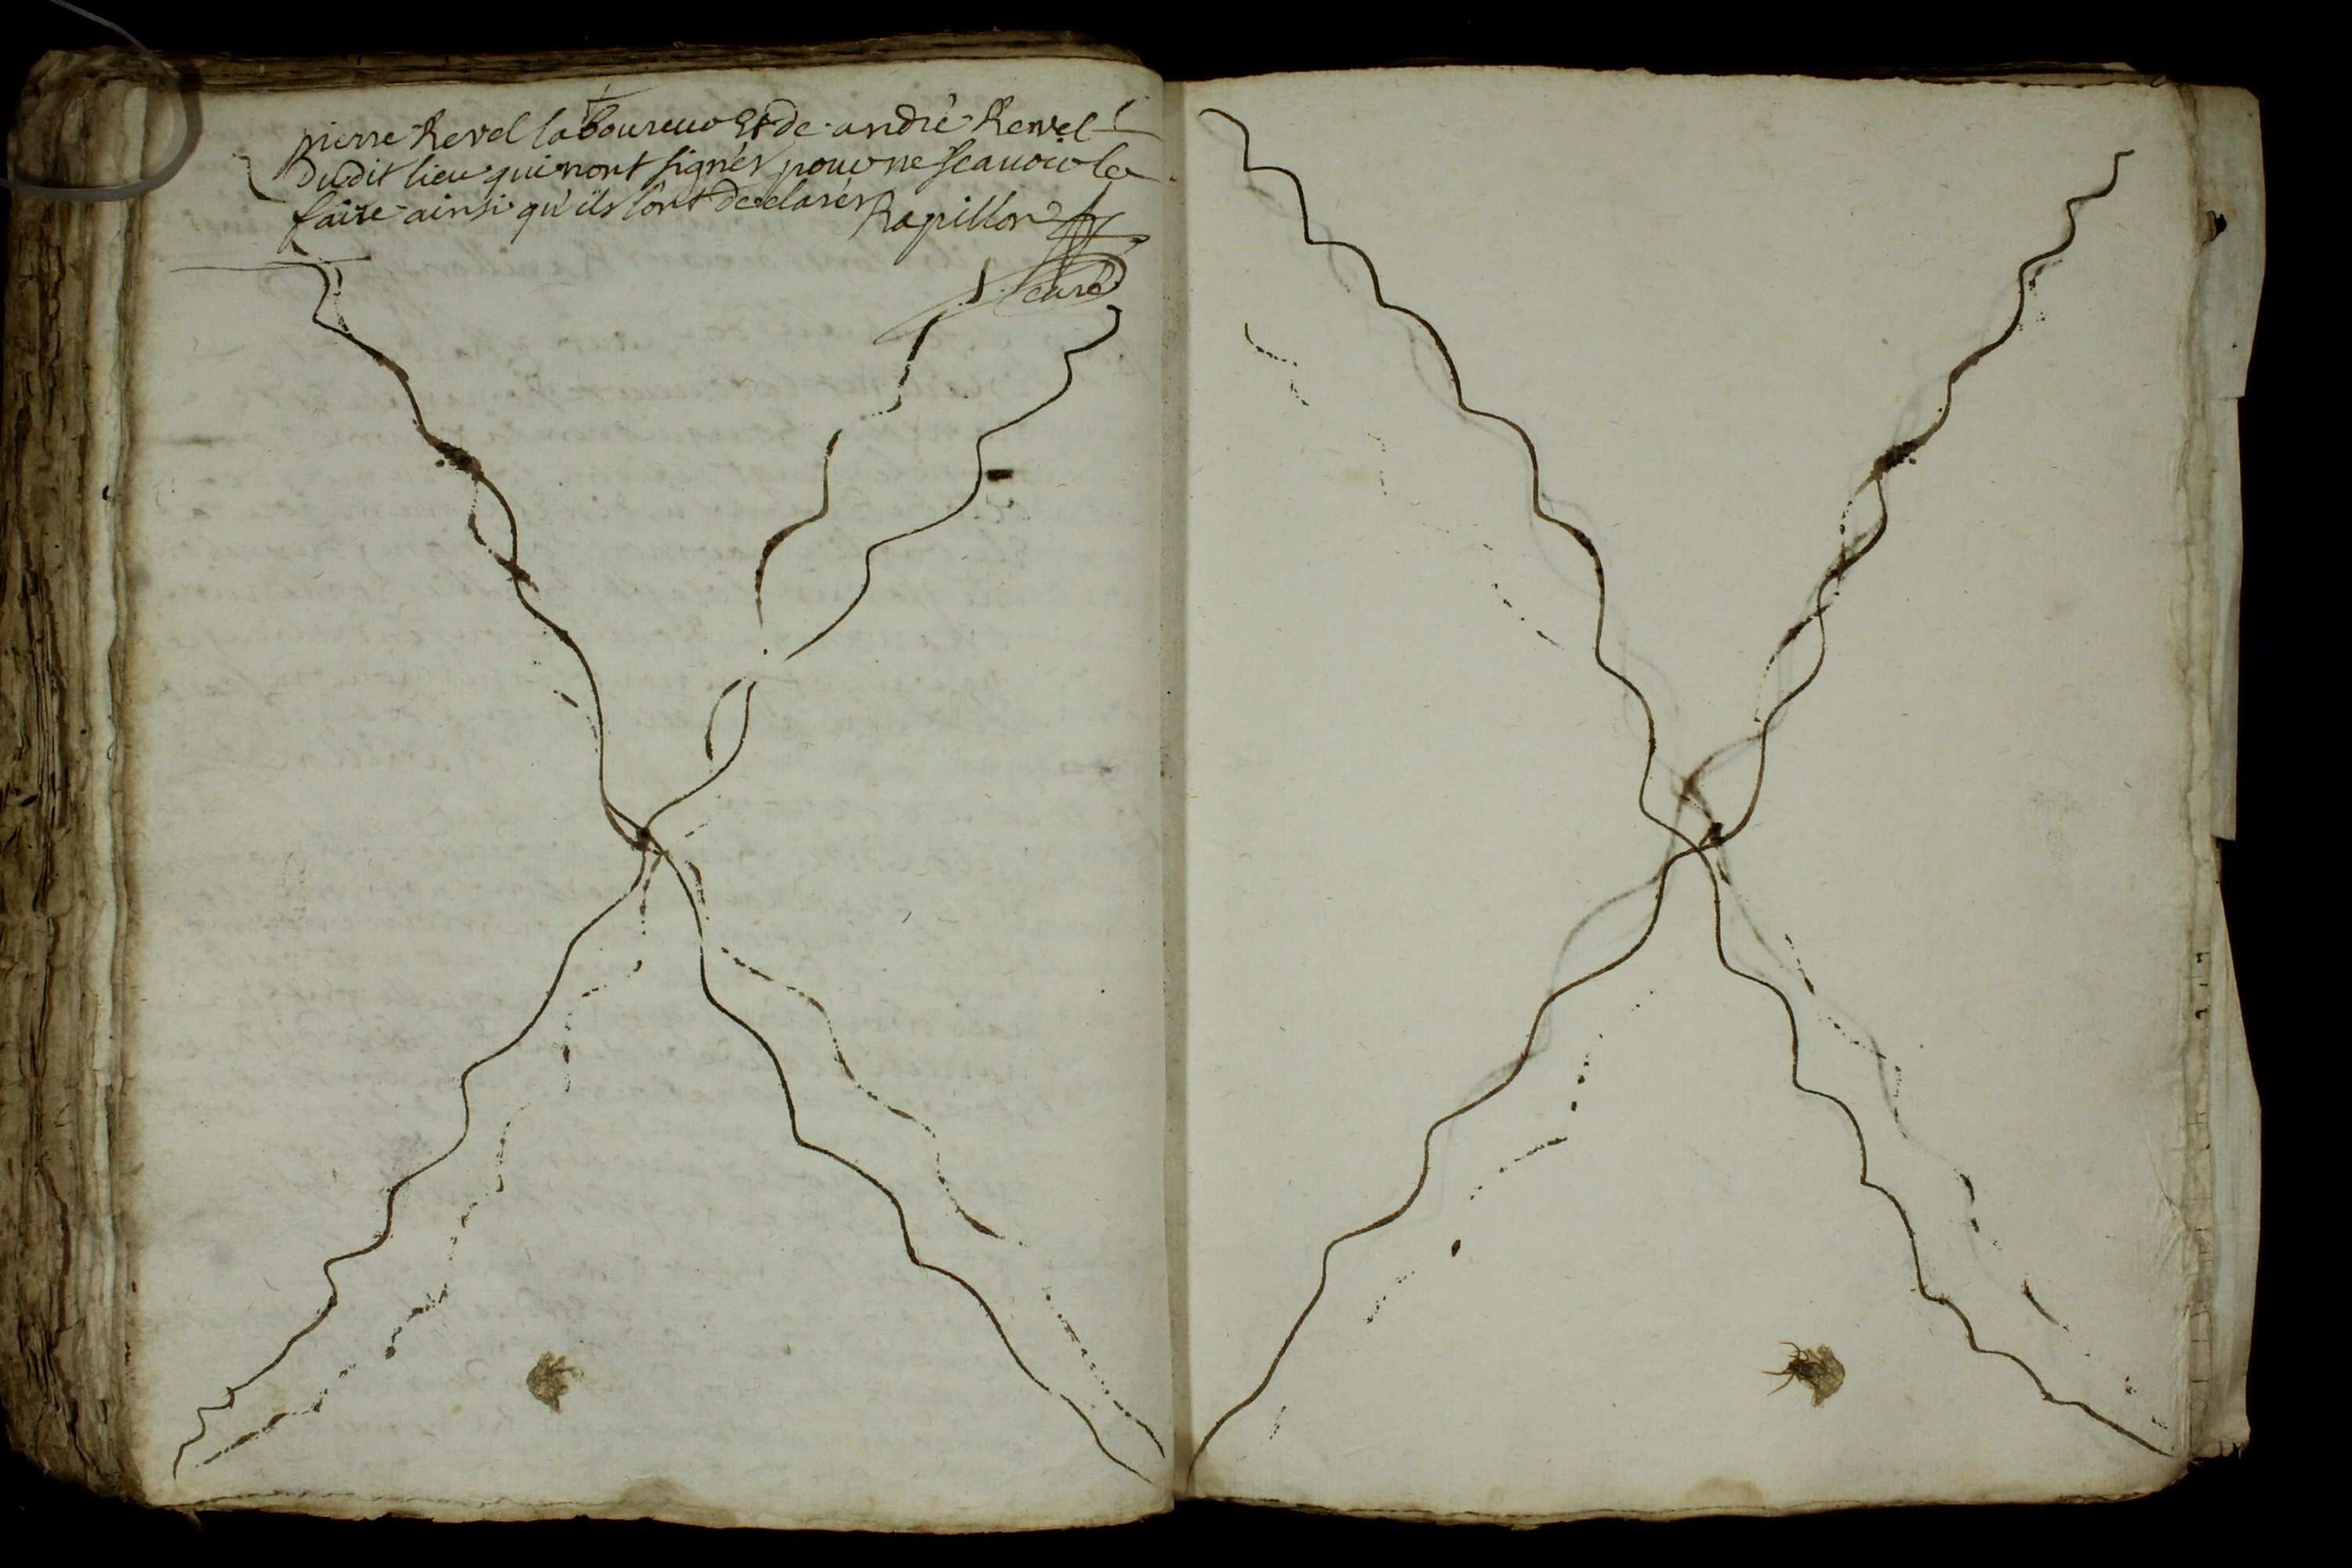 pierre Revel laboureur Et de andré Revel
dudit lieu qui nont signés pour ne scauoir le
faire ainsi qu'ils lont declarés Rapillon
curé